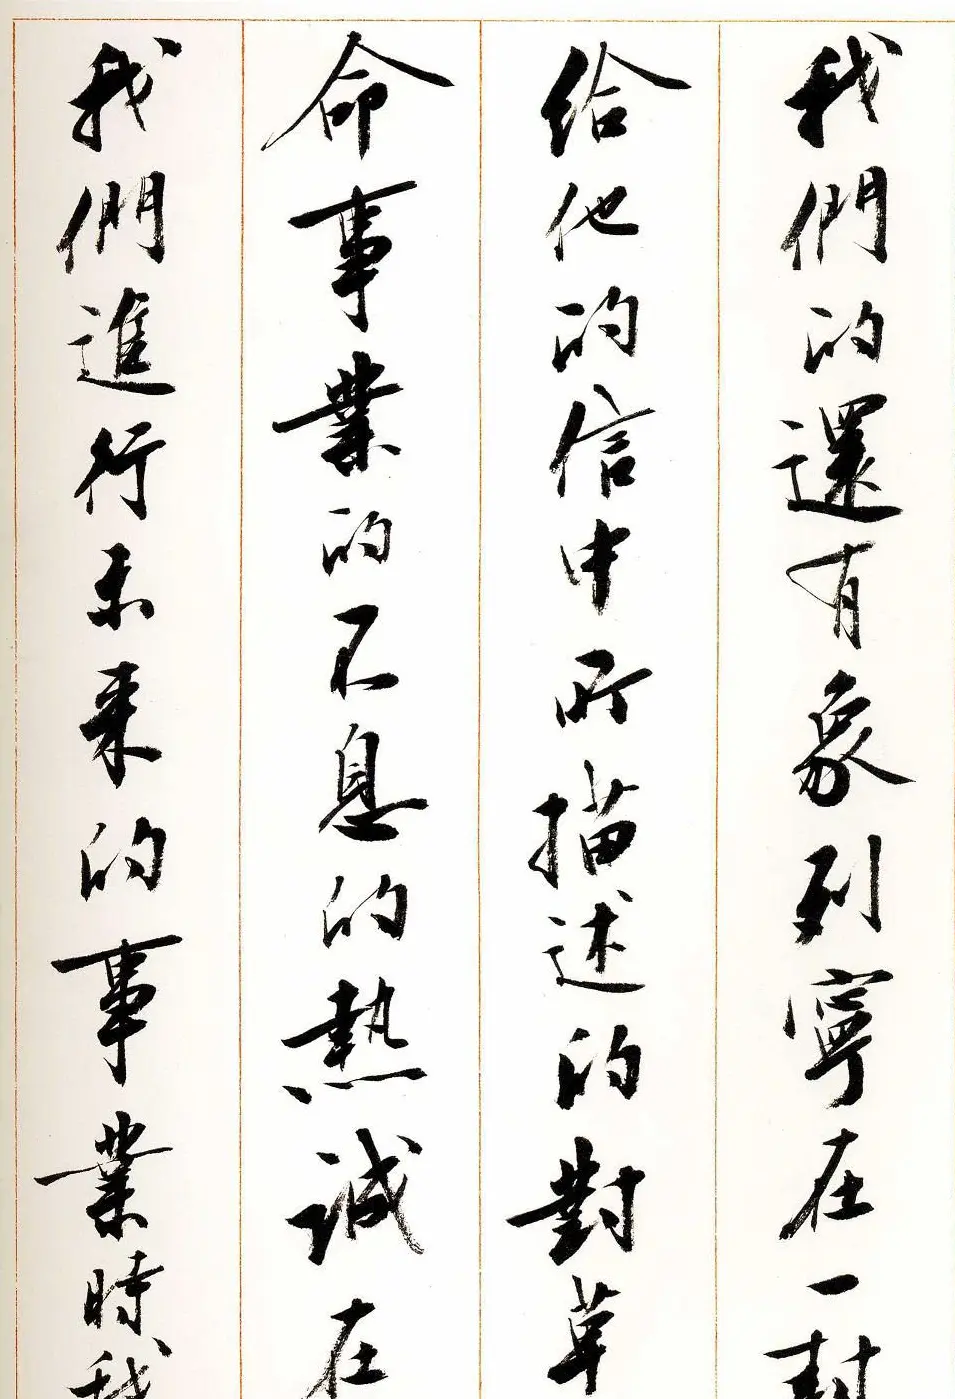 我們的還有象列寧在一封
給他的信中所描述的對革
命事業的不息的熱誠在
我們進行未來的事業時我